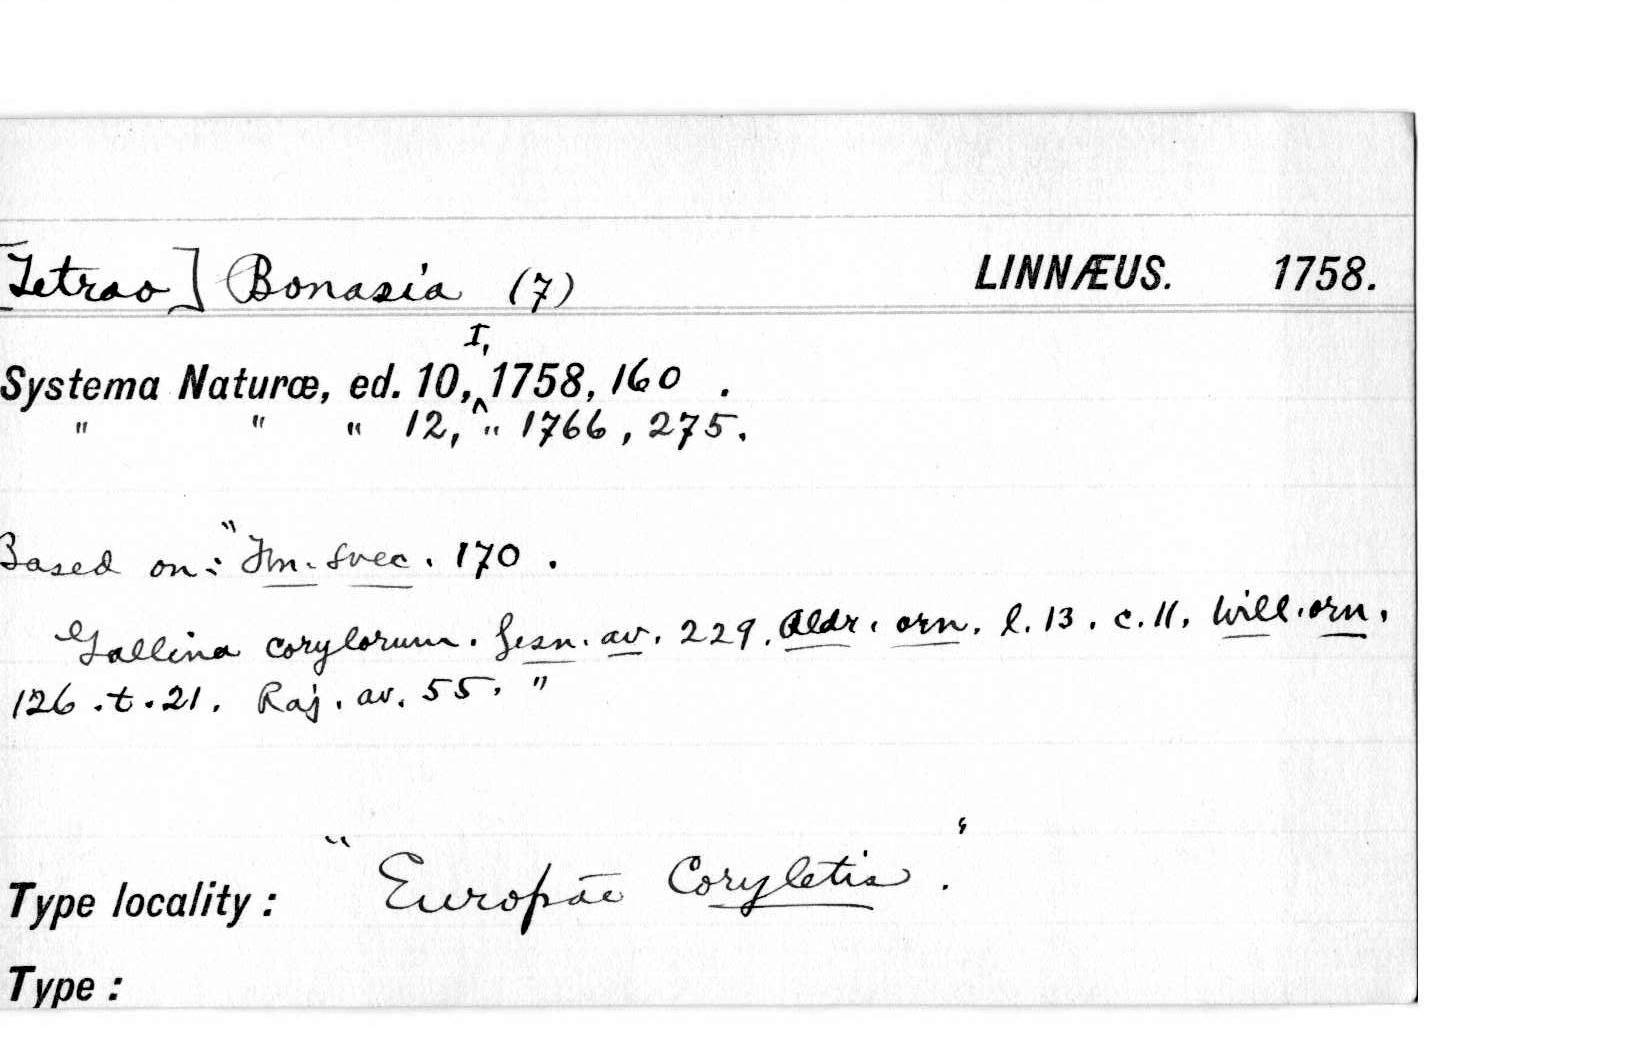 [Tetrao] Bonasia (7) LINNÆUS. 1758.
I,
Systema Naturæ, ed. 10,^ 1758, 160 .
" " " 12, " 1766, 275.
Based on: "Fn. Svec. 170 .
Gallina corylorum. Gesn. av. 229. Aldr. orn. l. 13. c. 11. Will. orn.
126. t. 21. Raj. av. 55. "
Type locality: "Europae Coryletis."
Type: